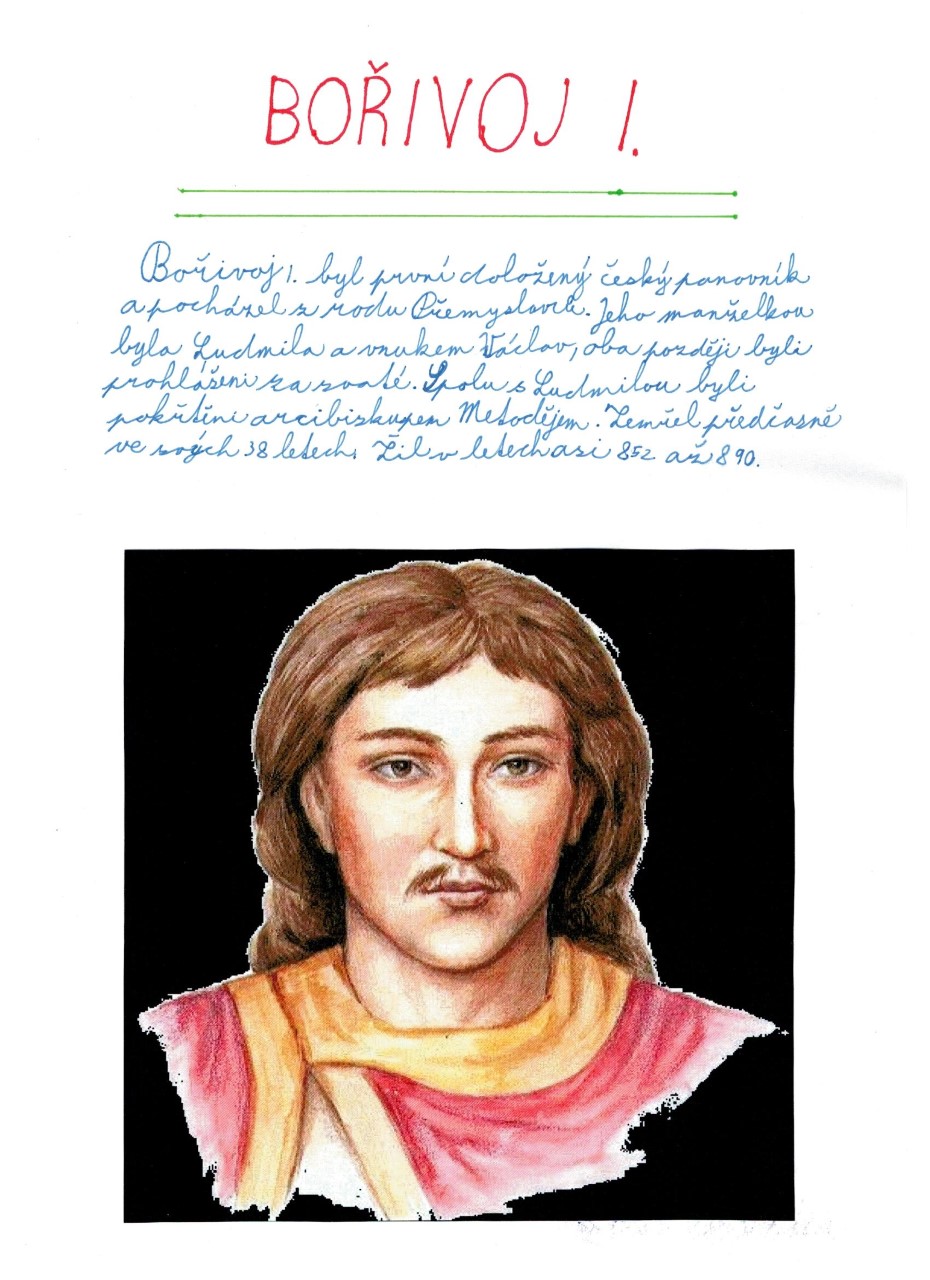 BOŘIVOJ I.
Bořivoj I. byl první doložený český panovník
a pocházel z rodu Přemyslovců. Jeho manželkou
byla Ludmila a vnukem Václav, oba později byli
prohlášeni za svaté. Spolu s Ludmilou byli
pokřtěni arcibiskupem Metodějem. Zemřel předčasně
ve svých 38 letech. Žil v letech asi 852 až 890.